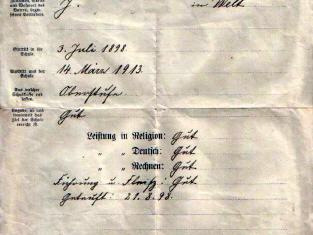 und Wohnort des
Vaters, bezw.
J. in Welt
Eintritt in die
Schule
3. Juli 1898
Austritt aus der
Schule
14. März 1913.
Aus welcher
Oberstufe
Gut
Leistung in Religion: Gut
„ „ Deutsch: Gut
„ „ Rechnen: Gut
Führung u Fleiß: Gut
Getauft: 21.8.98.